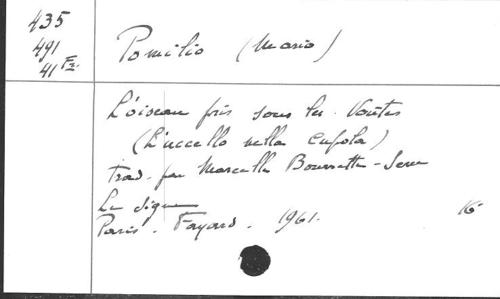 435
491
41 Fz.
Pomilio (Mario)
L'oiseau pris sous les voûtes
(L'uccello nella cupola)
trad. par Marcelle Bourrette-Serre
Le signe
Paris. Fayard. 1961. 16°